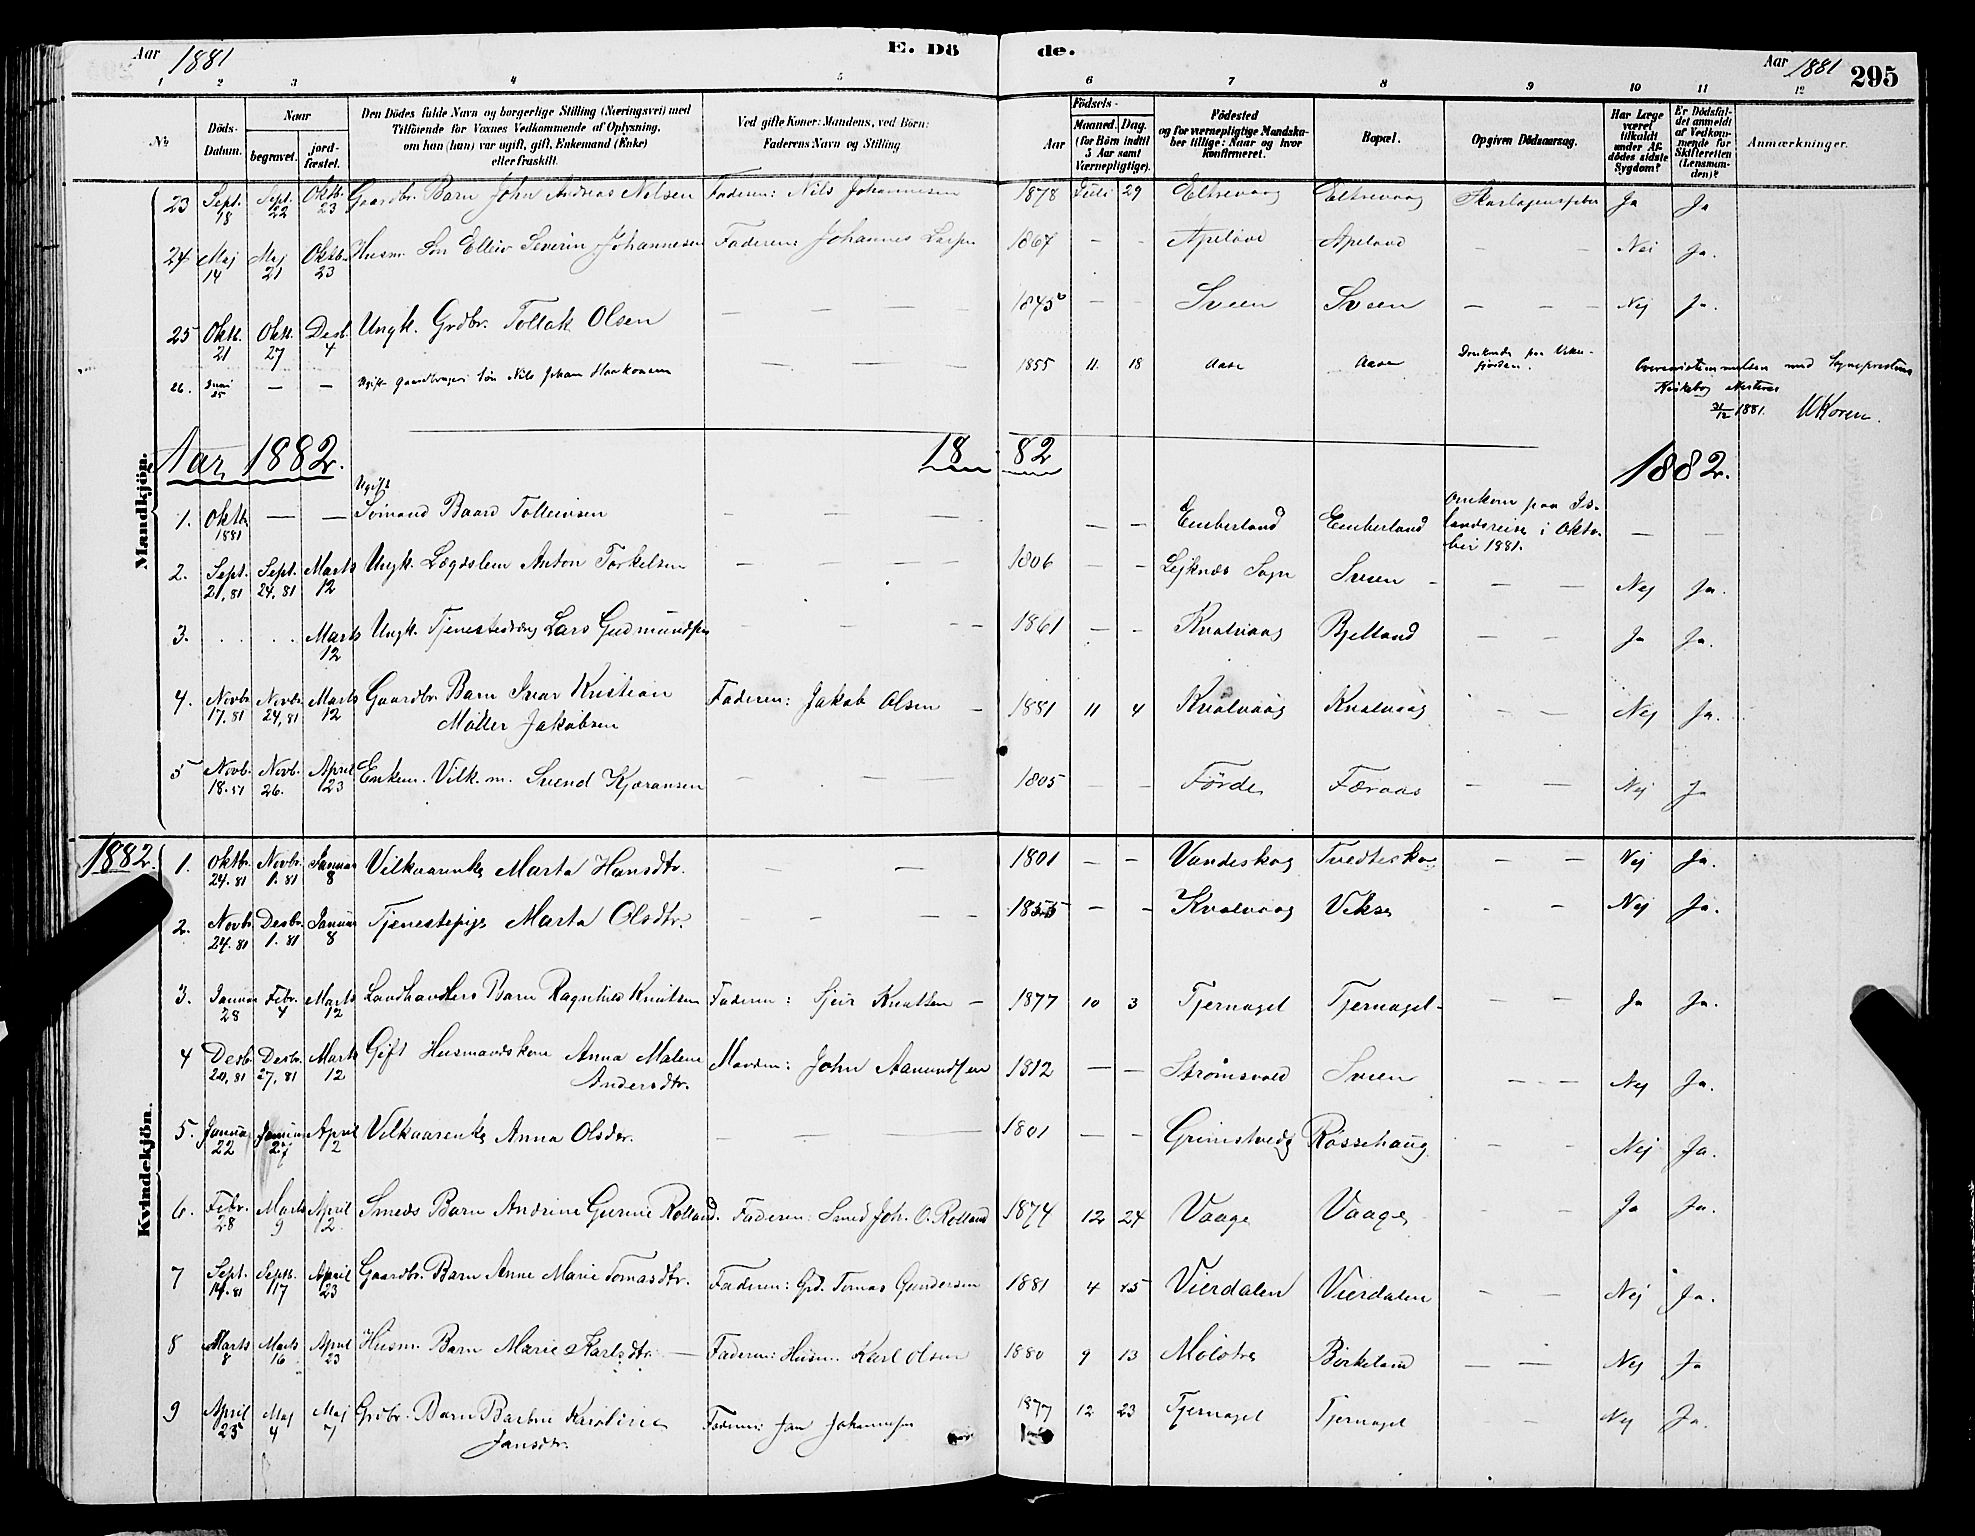 Aar 1881
E. Dö
de.
Aar 1881
295
1 2 3 4 5 6 7 8 9 10 11 12
No
Döds-Datum.
Naar
begravet.
jord-fæstet.
Den Dödes fulde Navn og borgerlige Stilling (Næringsvei) med
Tilföiende for Voxnes Vedkommende af Oplysning,
om han (hun) var ugift, gift, Enkemand (Enke)
eller fraskilt.
Ved gifte Koner: Mandens, ved Börn:
Faderens Navn og Stilling
Födsels-
Aar
Maaned. Dag.
(for Börn indtil
5 Aar samt
Værnepligtige).
Födested
og for værnepligtige Mandska-
ber tillige: Naar og hvor
konfirmeret.
Bopæl.
Opgiven Dödsaarsag.
Har Læge
været
tilkaldt
under Af-
dödes sidste
Sygdom?
Er Dödsfal-
det anmeldt
af Vedkom-
mende for
Skifteretten
(Lensman-
den)?
Anmærkninger.
Mandkjön.
23 Sept. 18 Sept. 22 Oktb. 23 Gaardbr. Barn John Andreas Nilsen Faderen: Nils Johannesen 1878 Juli 29 Eltrevaag Eltrevaag Skarlagensfeber Ja Ja
24 Maj 14 Maj 21 Oktb. 23 Husm. Søn Ellew Severin Johannesen Faderen: Johannes Larsen 1867 – – Apeland Apeland – – Nei Ja.
25 Oktb. 21 Oktb. 27 Desb. 4 Ungk. Grdbr. Tollak Olsen – – – 1845 – – Sveen Sveen – – – Nej Ja.
26. Juni 25 – – Ugift Gaardbrugers Søn Nils Johan Haakonsen – – – 1855 11. 18 Aase Aase Druknede paa Viks-
fjorden.
Overensstemmelsen med Sogneprestens
Kirkebog attesteres
31/12 1881. UKoren.
Aar 1882. 18 82 1882.
1. Oktb. 1881 – – Ugift
Sømand Baard Tolleivsen – – – – – Emberland Emberland Omkom paa Is-
landsreise i Okto-
ber 1881. – –
2. Sept. 21, 81 Sept. 24, 81 Marts 12 Ungk. Lægdslem Anton Torkelsen – – – 1806 – – Lejknes Sogn Sveen – – – Nej Ja.
3. . . . . Marts 12 Ungk. Tjenestedreng Lars Gudmundsen – – – 1861 – – Kvalvaag Bjelland – – Ja Ja.
4. Novbr. 17, 81 Novbr. 24, 81 Marts 12 Gaardbr. Barn Ivar Kristian
Møller Jakobsen Faderen: Jakob Olsen – 1881 11 4 Kvalvaag Kvalvaag – – Nej Ja.
5 Novb. 18. 81 Novb. 26. April 23 Enkem. Vilk. m. Svend Kjøransen – – – 1805 – – Førde Færaas – – Nej Ja
1882.
Kvindekjön.
1. Oktbr. 24. 81 Novbr. 1. 81 Januar 8 Vilkaarenke Marta Hansdtr. – – 1801 – – Vandeskog Tvedtesko – – Nej Ja.
2. Novbr. 24. 81 Desbr. 1. 81 Januar 8 Tjenestepige Marta Olsdtr. – – – – 1855 – – Kvalvaag Vikse – – Nej Ja.
3. Januar 28 Febr. 4 Marts 12 Landhandlers Barn Ragnhild Knutsen Faderen: Sjur Knutsen – 1877 10 3 Tjernagel Tjernagel – – Ja Ja.
4 Desbr. 20, 81 Desbr. 27, 81 Marts 12 Gift Husmandskone Anna Malene
Andersdtr. Manden: John Aamundsen 1812 – – Strømsvold Sveen – – Nej Ja.
5. Januar 22 Januar 27 April 2 Vilkaarenke Anna Olsdtr. – – – 1801 – – Grimstvedt Røssehaug – – Nej Ja.
6. Febr. 28 Marts 9 April 2. Smeds Barn Andrine Gurine Rolland. Faderen: Smed Joh. O. Rolland 1874 12 24 Vaage Vaage – – Ja Ja.
7 Sept. 14. 81 Septb. 17 April 23 Gaardbr. Barn Anne Marie Tomasdtr. Faderen: Grd. Tomas Gundersen 1881 4 25 Vierdalen Vierdalen – – Nej Ja.
8 Marts 8 Marts 16 April 23 Husm. Barn Marie Karlsdtr. – Faderen: Husm. Karl Olsen 1880 9 13 Molstre Børkeland – – Nej Ja
9 April 25 Maj 4 Maj 7 Grdbr. Barn Barbra Karoline
Jansdtr. Faderen: Jan Johannesen 1877 12 23 Tjernagel Tjernagel – Nej Ja.